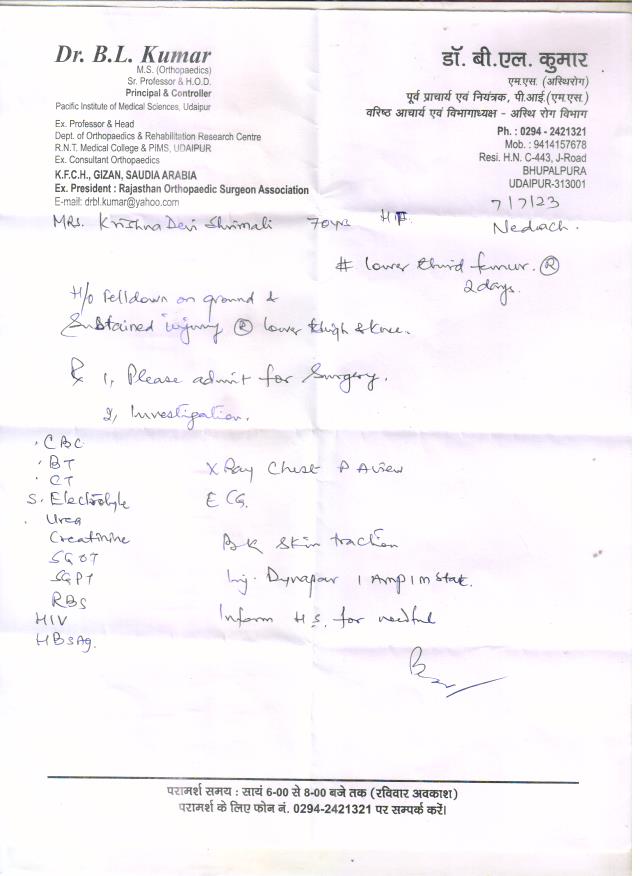 Dr. B.L. Kumar
M.S. (Orthopaedics)
Sr. Professor & H.O.D.
Principal & Controller
Pacific Institute of Medical Sciences, Udaipur
Ex. Professor & Head
Dept. of Orthopaedics & Rehabilitation Research Centre
R.N.T. Medical College & PIMS, UDAIPUR
Ex. Consultant Orthopaedics
K.F.C.H., GIZAN, SAUDIA ARABIA
Ex. President : Rajasthan Orthopaedic Surgeon Association
E-mail: drbl.kumar@yahoo.com
डॉ. बी.एल. कुमार
एम.एस. (अस्थिरोग)
पूर्व प्राचार्य एवं नियंत्रक, पी.आई.(एम.एस.)
वरिष्ठ आचार्य एवं विभागाध्यक्ष - अस्थि रोग विभाग
Ph. : 0294 - 2421321
Mob. : 9414157678
Resi. H.N. C-443, J-Road
BHUPALPURA
UDAIPUR-313001
7/7/23
MRS. Krishna Devi Shrimali 70yrs
# lower third femur. Ⓡ
2 days.
H/o felldown on ground &
Sustained injury Ⓡ lower thigh & knee.
℞ 1, Please admit for Surgery.
2, Investigation.
. CBC
. BT
. CT
S. Electrolyte
. Urea
Creatinine
SGOT
SGPT
RBS
HIV
HBSAg.
X Ray Chest P A view
ECG.
BK Skin traction
Inj. Dynapar 1 Amp IM Stat.
Inform H.S. for needful
परामर्श समय : सायं 6-00 से 8-00 बजे तक (रविवार अवकाश)
परामर्श के लिए फोन नं. 0294-2421321 पर सम्पर्क करें।